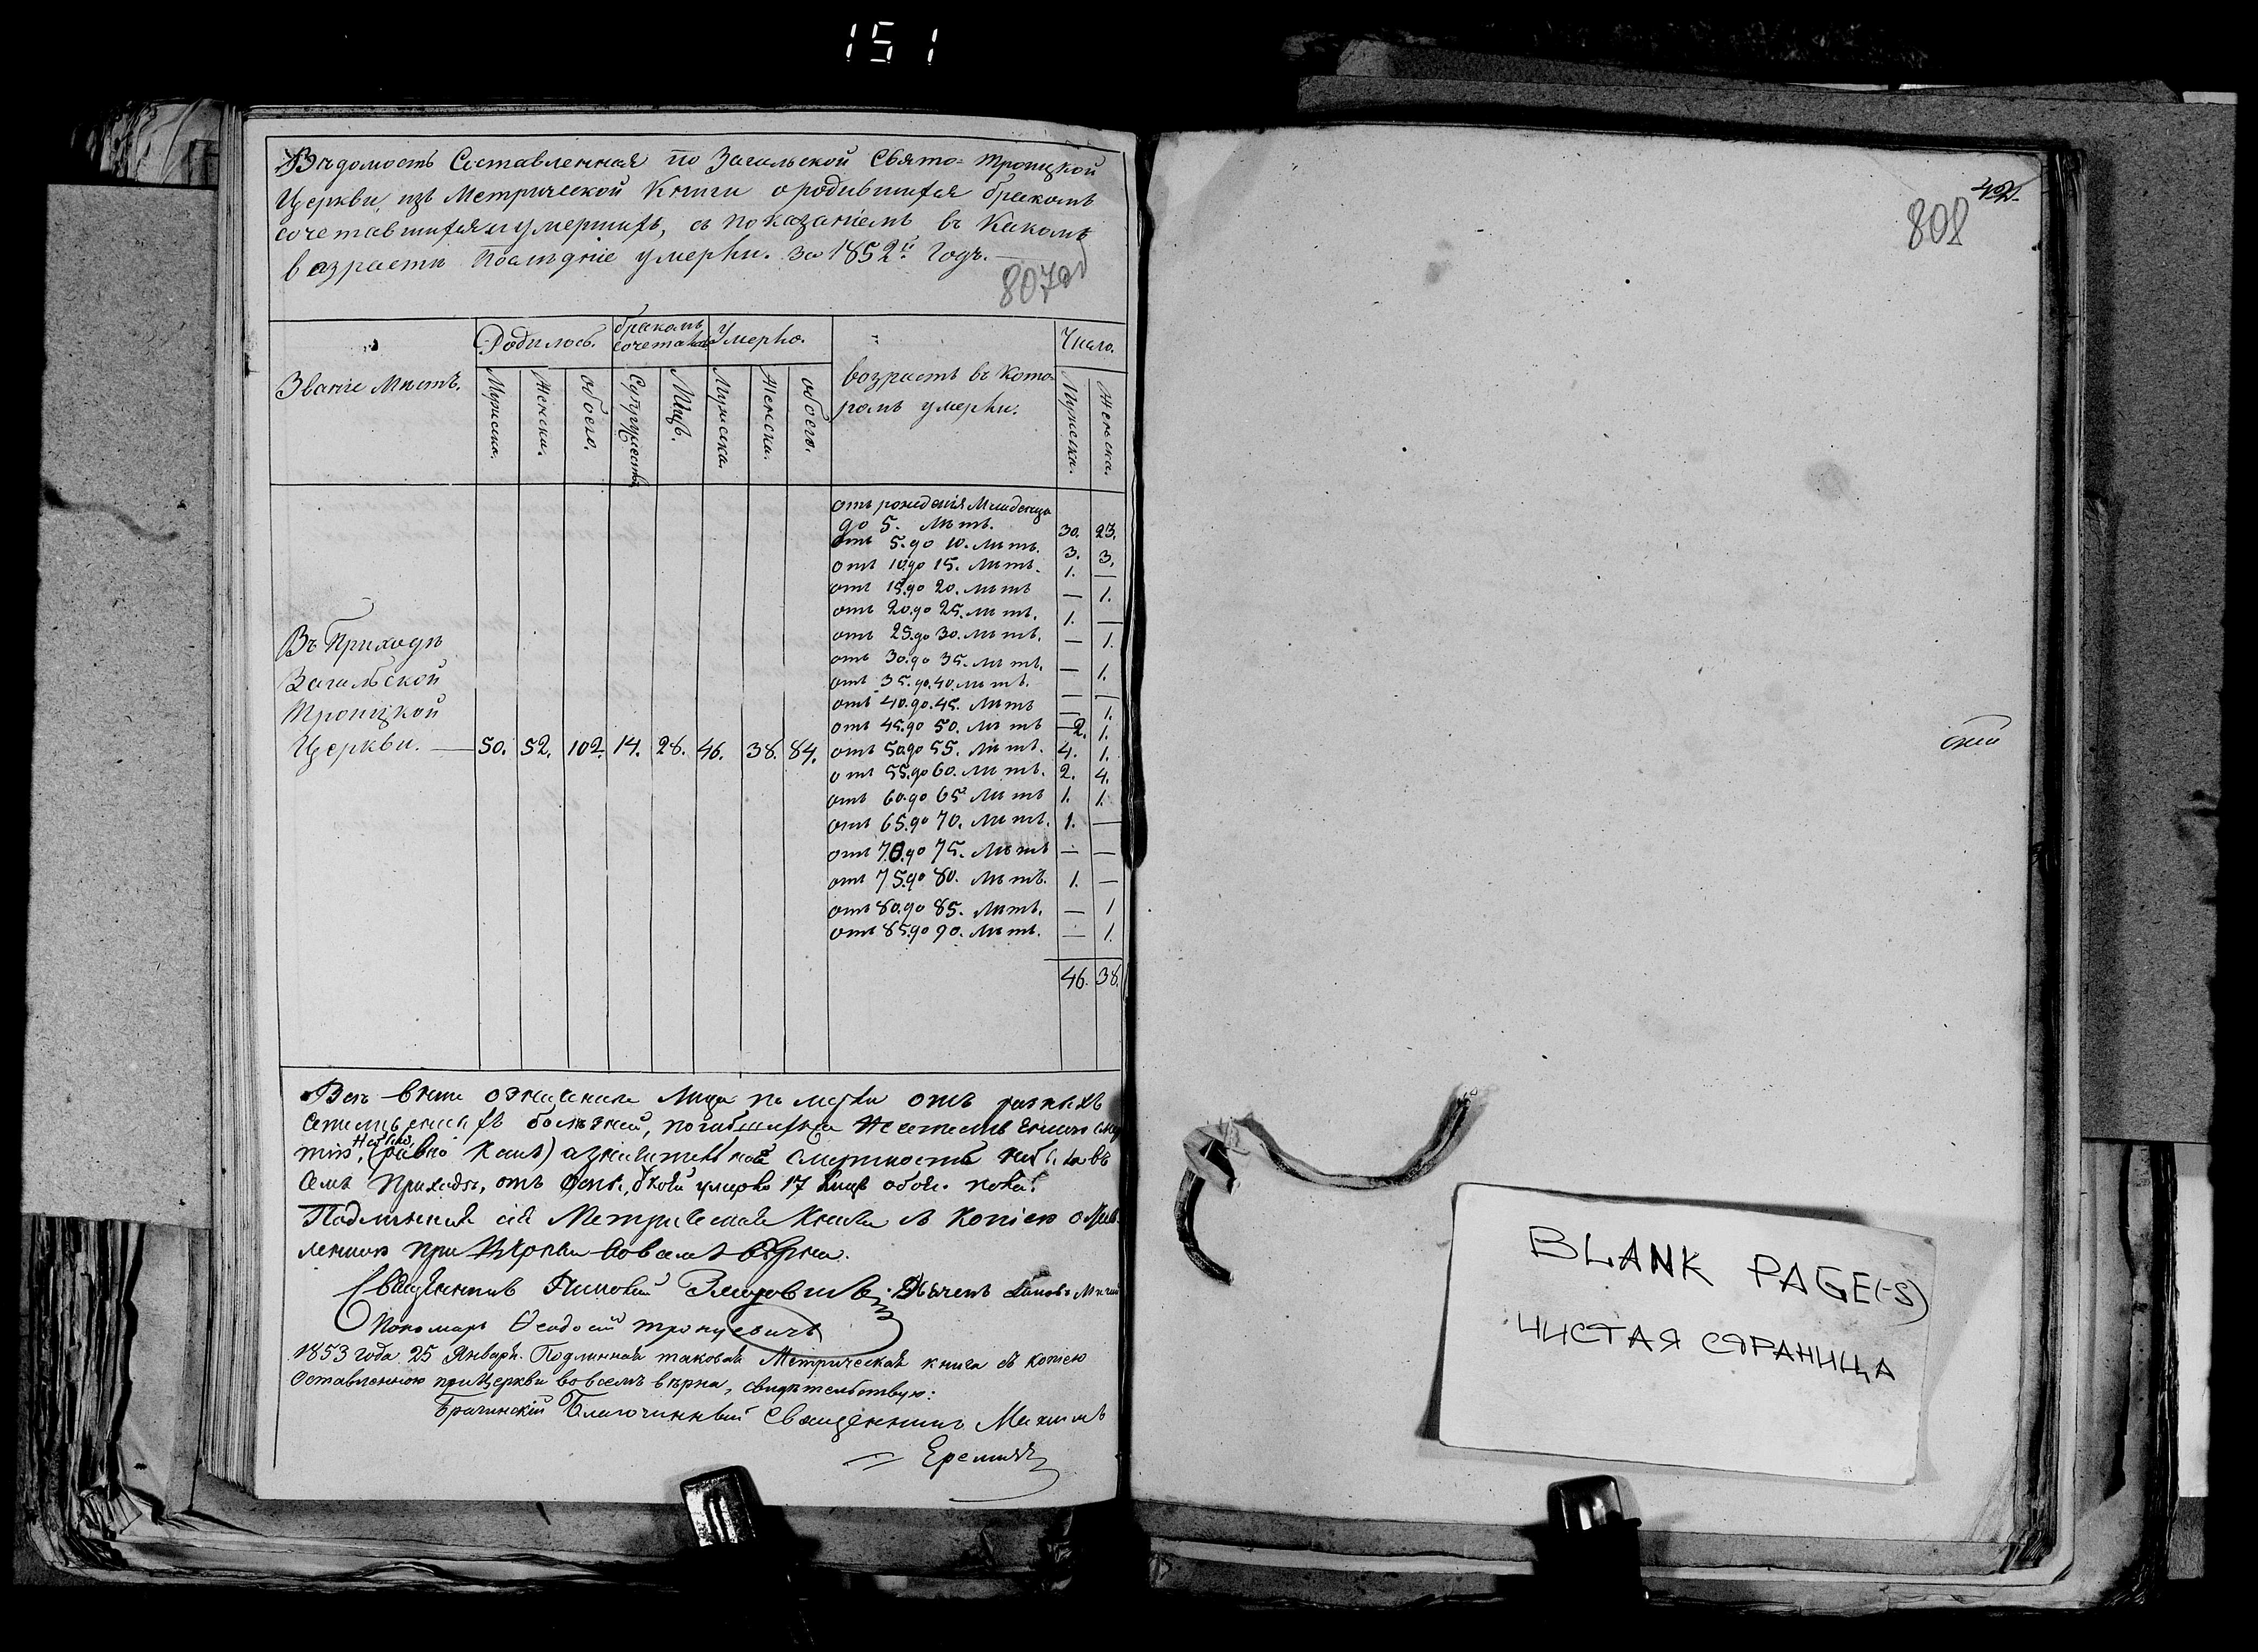 151
Вѣдомость Составленная по Загальской Свято-Троицкой
Церкви, изъ Метрической Книги о родившихся бракомъ
сочетавшихся и умершихъ, съ показаніемъ въ Какомъ
возрастѣ Послѣдніе умерли. За 1852й Годъ.
807об
Званіе Мѣстъ.
Родилось.
бракомъ
сочеталось
Умерло.
возрастъ въ кото-
ромъ умерли.
Число.
Мужска.
Женска.
обоего.
Супружествъ
Лицъ.
Мужска.
Женска.
обоего.
Мужска.
Женска.
отъ рожденія Младенца
до 5. лѣтъ. 30. 23.
отъ 5. до 10. лѣтъ. 3. 3.
отъ 10. до 15. лѣтъ. 1. —
отъ 15. до 20. лѣтъ — 1.
отъ 20. до 25. лѣтъ. 1. —
отъ 25. до 30. лѣтъ. — 1.
отъ 30. до 35. лѣтъ. — 1.
отъ 35. до 40. лѣтъ. — —
отъ 40. до 45. лѣтъ — 1.
отъ 45. до 50. лѣтъ 2. 1.
отъ 50. до 55. лѣтъ. 4. 1.
отъ 55. до 60. лѣтъ. 2. 4.
отъ 60. до 65. лѣтъ 1. 1.
отъ 65. до 70. лѣтъ. 1. —
отъ 70. до 75. лѣтъ — —
отъ 75. до 80. лѣтъ. 1. —
отъ 80. до 85. лѣтъ. — 1
отъ 85. до 90. лѣтъ. — 1.
46. 38.
Въ Приходѣ
Загальской
Троицкой
Церкви. — 50. 52. 102. 14. 28. 46. 38. 84.
Всѣ лица отъ разныхъ
болѣзней, погибшихъ
смертность въ
семъ Приходѣ, отъ умерло 17 лицъ обоего пола.
Подлинная сія Метрическая Книга съ Копіею остав-
ленною при Церкви во всемъ вѣрна.
Священникъ
Пономарь Ѳеодосій
1853 года 25 Января. Подлинная таковая Метрическая книга съ копіею
Оставленною при Церкви во всемъ вѣрна, свидѣтельствую:
Брагинскій Благочинный Священникъ
808
BLANK PAGE(-S)
ЧИСТАЯ СТРАНИЦА